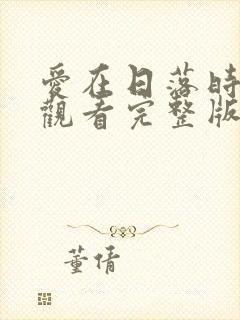 愛在日落時
觀看完整版
董倩